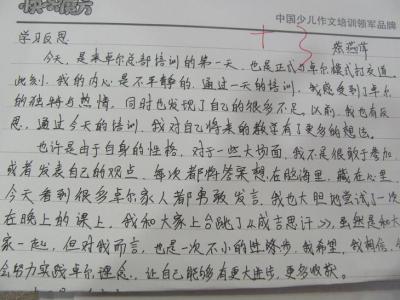 快乐魔方
中国少儿作文培训领军品牌
学习反思
蔡燕萍
今天,是来卓尔总部培训的第一天,也是正式与卓尔模式打交道。
此刻,我的内心是不平静的,通过一天的培训,我感受到了卓尔
的独特与热情,同时也发现了自己的很多不足。以前,我也有反
思,通过今天的培训,我对自己将来的教学有了更多的想法。
也许是由于自身的性格,对于一些大场面,我不是很敢于参加
或者发表自己的观点,每次都将答案想在脑海里,藏在心里,
今天看到很多卓尔家人都勇敢发言,我也大胆地尝试了一次
在晚上的课上,我和大家上台跳了《成言思汗》,虽然是和大
家一起,但对我而言,也是一次不小的进步,我希望,我相信,
会努力实践卓尔理念,让自己能够有更大进步,更多收获。